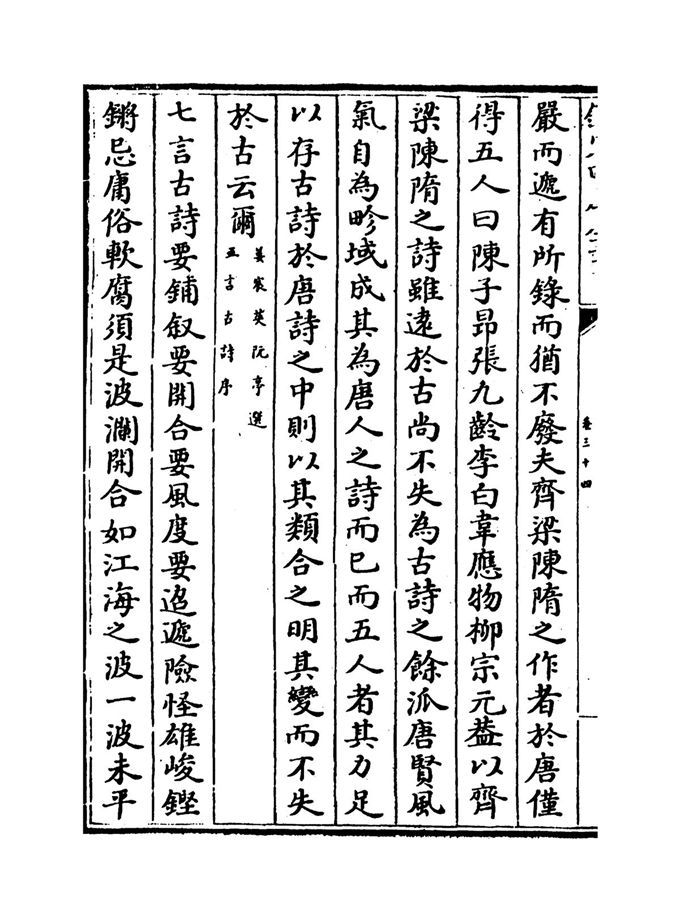 卷三十四
嚴而遞有所錄而猶不廢夫齊梁陳隋之作者於唐僅
得五人曰陳子昂張九齡李白韋應物柳宗元葢以齊
梁陳隋之詩雖遠於古尚不失為古詩之餘派唐賢風
氣自為畛域成其為唐人之詩而已而五人者其力足
以存古詩於唐詩之中則以其類合之明其變而不失
於古云爾
姜宸英阮亭選
五言古詩序
七言古詩要鋪叙要開合要風度要迢遞險怪雄峻鏗
鏘忌庸俗軟腐須是波瀾開合如江海之波一波未平